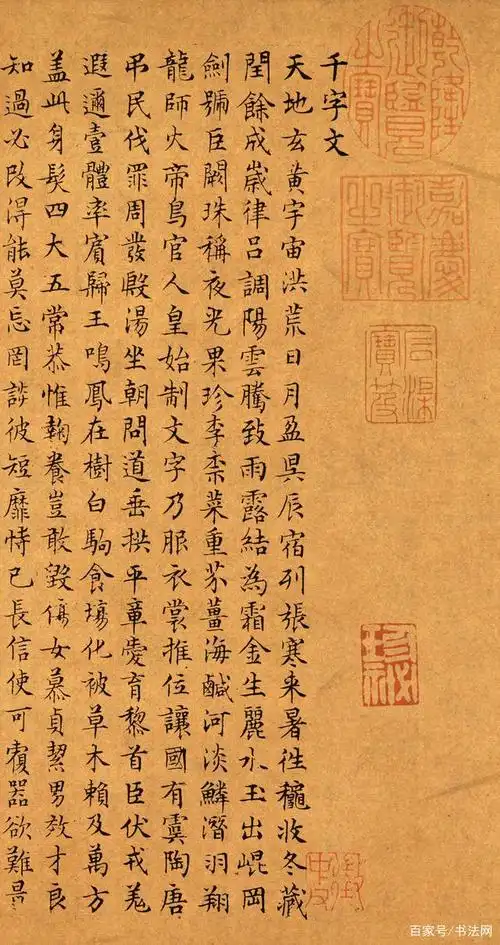 乾隆御覽之寶
嘉慶御覽之寶
石渠寶笈
千字文
天地玄黃宇宙洪荒日月盈昃辰宿列張寒来暑徃穐收冬藏
閏餘成歲律吕調陽雲騰致雨露結為霜金生麗水玉出崐岡
劍號巨闕珠稱夜光果珍李柰菜重芥薑海鹹河淡鱗潛羽翔
龍師火帝鳥官人皇始制文字乃服衣裳推位讓國有虞陶唐
吊民伐罪周發殷湯坐朝問道垂拱平章愛育黎首臣伏戎羌
遐邇壹體率賓歸王鳴鳳在樹白駒食場化被草木賴及萬方
盖此身髮四大五常恭惟鞠養豈敢毀傷女慕貞絜男效才良
知過必改得能莫忘罔談彼短靡恃己長信使可覆器欲難量
珍祕
百家号/书法网